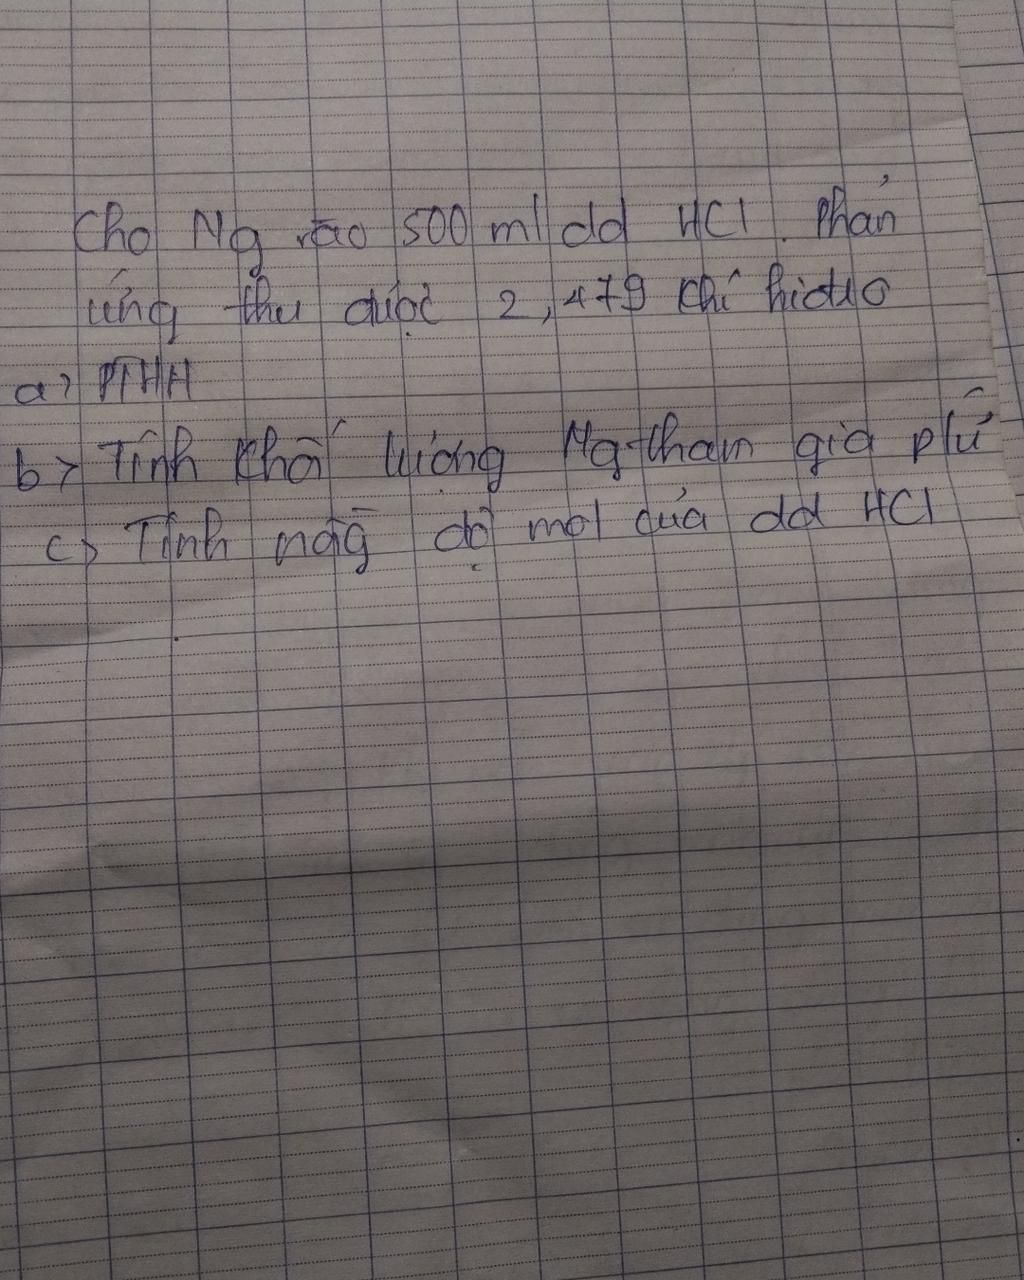 Cho Mg vào 500 ml dd HCl. Phản
ứng thu được 2,479 khí hiđro
a> PTHH
b> Tính khối lượng Mg tham gia p/ứ
c> Tính nồg độ mol của dd HCl